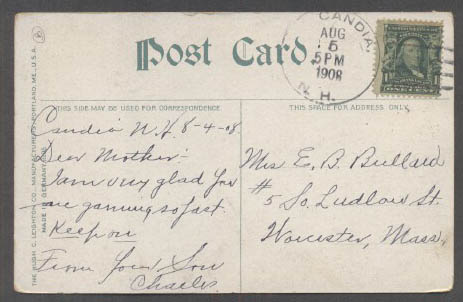 Post Card.
CANDIA,
AUG
5
5 PM
1908
N. H.
ONE CENT
THIS SIDE MAY BE USED FOR CORRESPONDENCE.
THIS SPACE FOR ADDRESS ONLY.
THE HUGH C. LEIGHTON CO., MANUFACTURERS, PORTLAND, ME., U.S.A.
MADE IN GERMANY
Candia N.H. 8-4-08
Dear Mother:-
I am very glad you
are gaining so fast.
Keep on
From Your Son
Charles
Mrs E. B. Bullard
#5 So. Ludlow St.
Worcester, Mass.